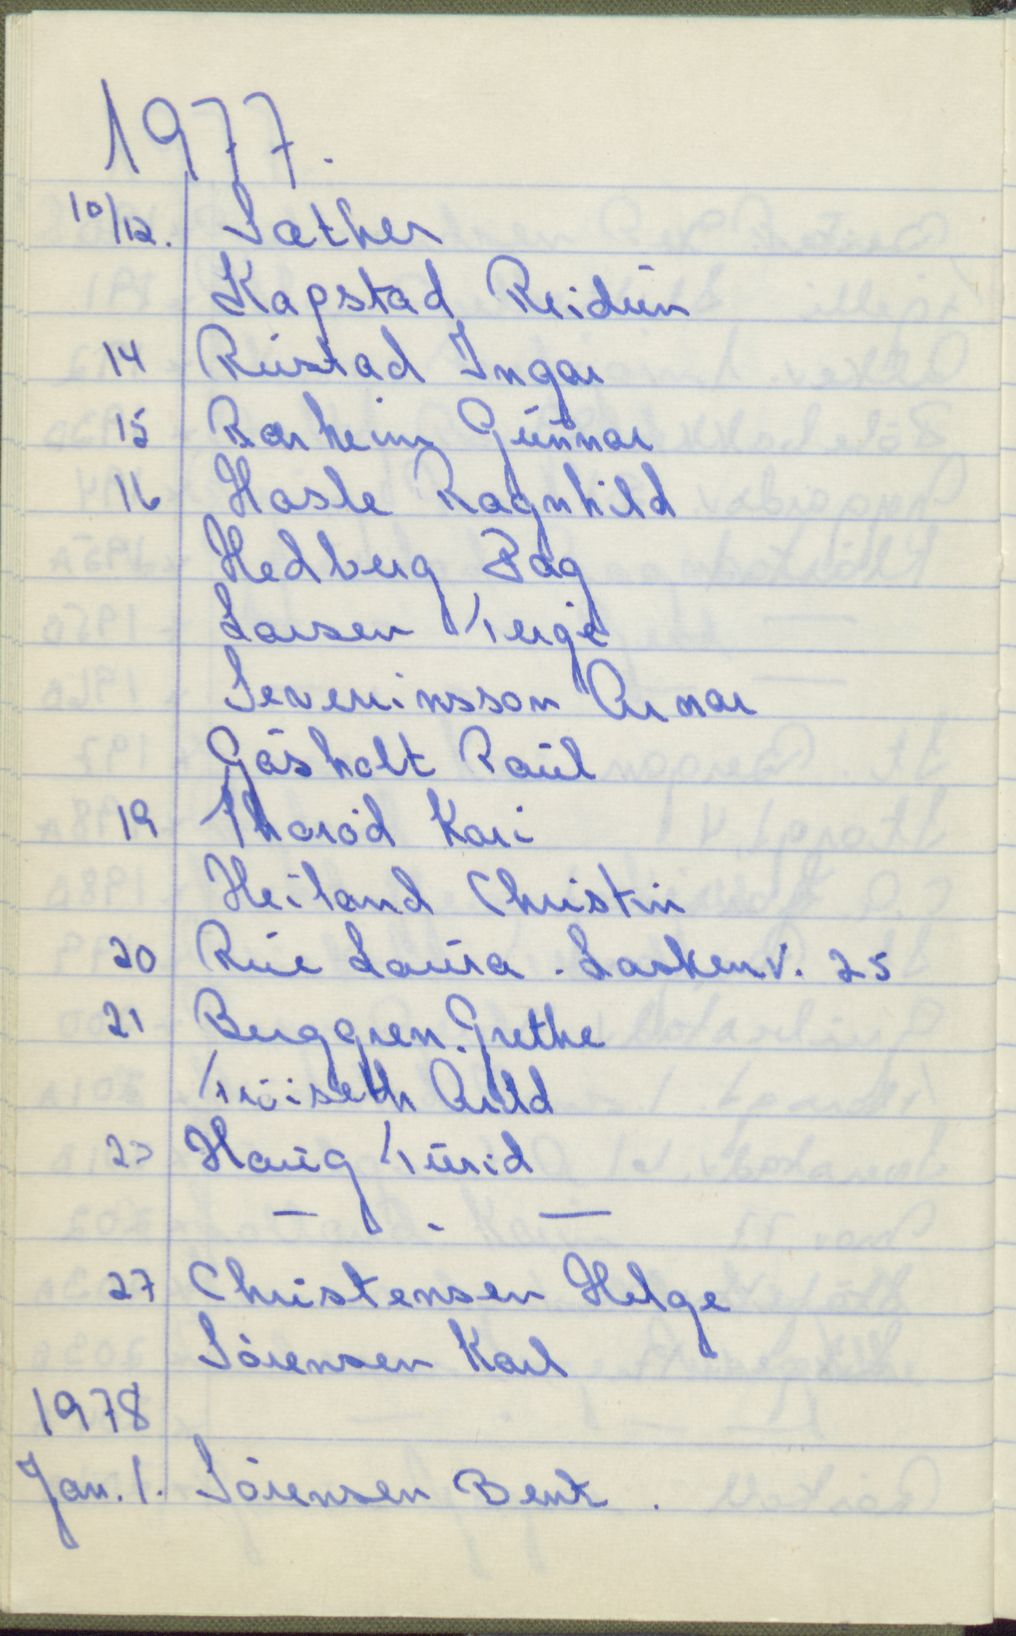 1977.
10/12. Sæther
Kapstad Reidun
14 Rustad Ingar
15 Rarheim Gunnar
16 Hasle Ragnhild
Hedberg Dag
Larsen Terje
Severinsson Arnar
Gåsholt Paul
19 Tharød Kari
Heiland Christin
20 Rue Laura . Laskenv. 25
21 Berggren. Grethe
Trøiseth Arild
23 Haug Turid
— . —
27 Christensen Helge
Sørensen Karl
1978
Jan. 1. Sørensen Bent .